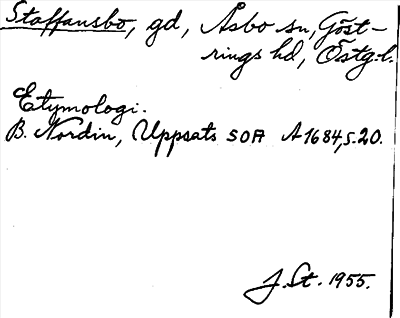 Staffansbo, gd, Åsbo sn, Göst-
rings hd, Östg.l.
Etymologi.
B. Nordin, Uppsats SOA A1684, s.20.
J.St. 1955.